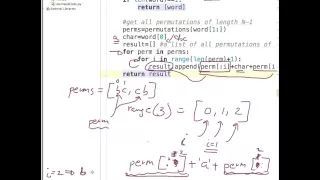 return [word]
#get all permutations of length N-1
perms=permutations(word[1:])
char=word[0]
result=[] #a list of all permutations of
for perm in perms:
for i in range(len(perm)+1):
result.append(perm[:i]+char+perm[i
return result
a
0 1
perms = [bc, cb]
perm
range(3) = [0, 1, 2]
i
i=1
i=2 => b
perm [: 2] + 'a' + perm [2 :]